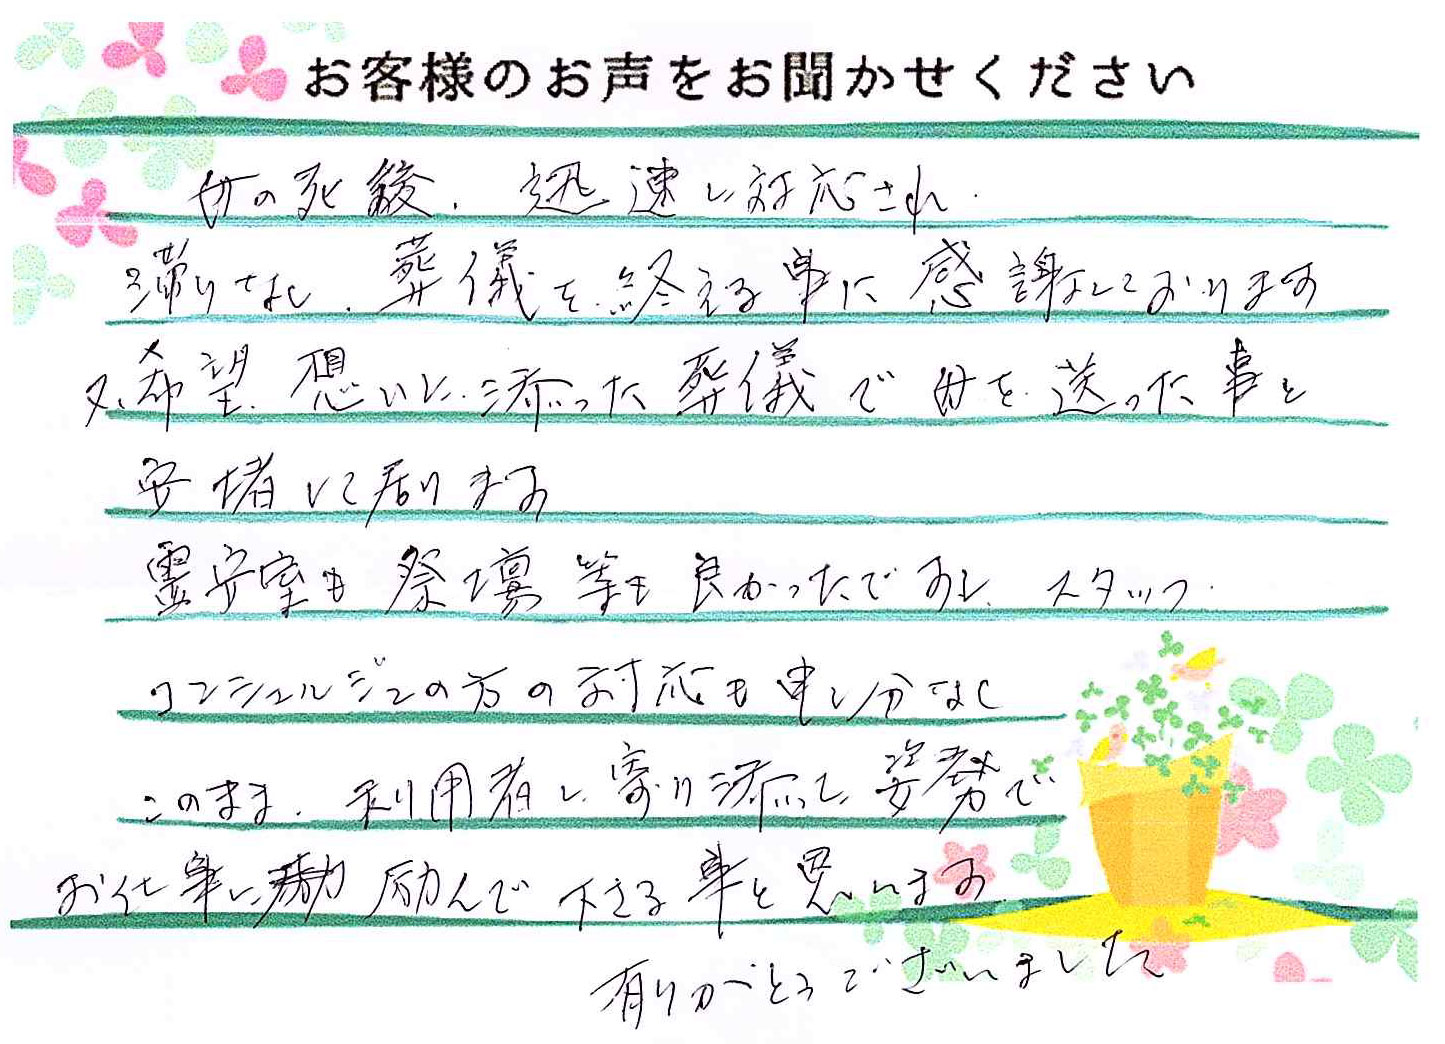 お客様のお声をお聞かせください
母の死後、迅速に対応され
滞りなく、葬儀を終える事に感謝しております
又、希望、想いに添った葬儀で母を送った事と
安堵して居ります
霊安室も祭壇等も良かったですし、スタッフ
コンシェルジュの方の対応も申し分なし
このまま、利用者に寄り添った姿勢で
お仕事に励んで下さる事と思います
有りがとうございました